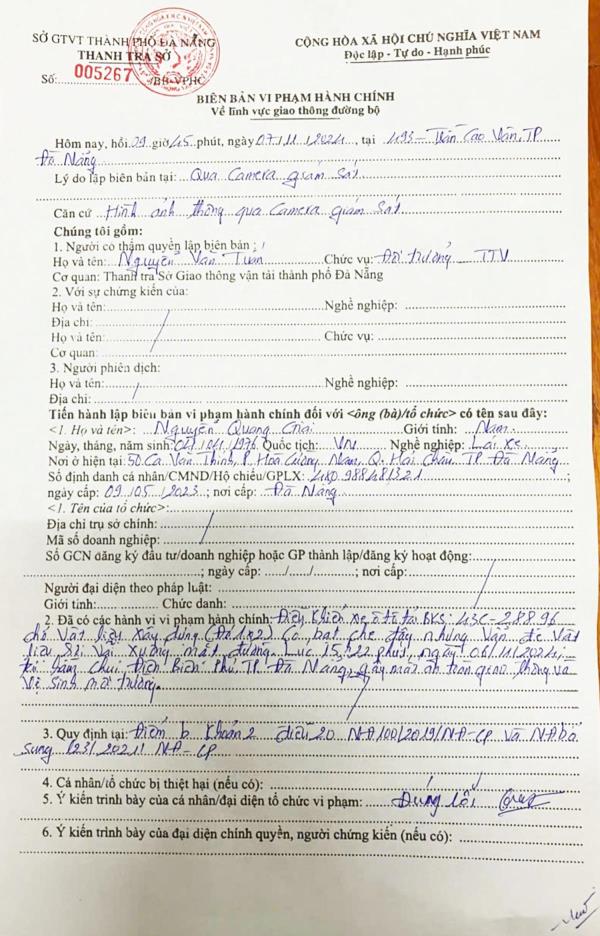 SỞ GTVT THÀNH PHỐ ĐÀ NẴNG
THANH TRA SỞ
Số: 005267 /BB-VPHC
CỘNG HÒA XÃ HỘI CHỦ NGHĨA VIỆT NAM
Độc lập - Tự do - Hạnh phúc
BIÊN BẢN VI PHẠM HÀNH CHÍNH
Về lĩnh vực giao thông đường bộ
Hôm nay, hồi 09 giờ 45 phút, ngày 07/11/2024, tại 493 - Trần Cao Vân, TP
Đà Nẵng
Lý do lập biên bản tại: Qua Camera giám sát
Căn cứ Hình ảnh thông qua Camera giám sát
Chúng tôi gồm:
1. Người có thẩm quyền lập biên bản :
Họ và tên: Nguyễn Văn Tuấn Chức vụ: Đội trưởng - TTV
Cơ quan: Thanh tra Sở Giao thông vận tải thành phố Đà Nẵng
2. Với sự chứng kiến của:
Họ và tên: Nghề nghiệp:
Địa chỉ:
Họ và tên: Chức vụ:
Cơ quan:
3. Người phiên dịch:
Họ và tên: Nghề nghiệp:
Địa chỉ:
Tiến hành lập biên bản vi phạm hành chính đối với <ông (bà)/tổ chức> có tên sau đây:
<1. Họ và tên>: Nguyễn Quang Giới tính: Nam.
Ngày, tháng, năm sinh: 02/04/1976 Quốc tịch: VN Nghề nghiệp: Lái xe.
Nơi ở hiện tại: 50 Ca Văn Thỉnh, P. Hoà Cường Nam, Q. Hải Châu, TP Đà Nẵng
Số định danh cá nhân/CMND/Hộ chiếu/GPLX: 988481321 ;
ngày cấp: 09/05/2023; nơi cấp: Đà Nẵng
<1. Tên của tổ chức>:
Địa chỉ trụ sở chính:
Mã số doanh nghiệp:
Số GCN đăng ký đầu tư/doanh nghiệp hoặc GP thành lập/đăng ký hoạt động:
; ngày cấp: ..../...../........; nơi cấp:
Người đại diện theo pháp luật:
Giới tính: Chức danh:
2. Đã có các hành vi vi phạm hành chính: Điều khiển xe ô tô tải BKS: 43C-288 96
chở vật liệu xây dựng (Đá 1x2) có bạt che đậy nhưng vẫn để vật
liệu rơi vãi xuống mặt đường. Lúc 15h22 phút, ngày 06/11/2024,
từ hầm chui Điện Biên Phủ, TP Đà Nẵng, gây mất an toàn giao thông và
vệ sinh môi trường.
3. Quy định tại: Điểm b khoản 2 điều 20 NĐ 100/2019/NĐ-CP và NĐ bổ
sung 123/2021/NĐ-CP
4. Cá nhân/tổ chức bị thiệt hại (nếu có):
5. Ý kiến trình bày của cá nhân/đại diện tổ chức vi phạm: Đúng lỗi
6. Ý kiến trình bày của đại diện chính quyền, người chứng kiến (nếu có):